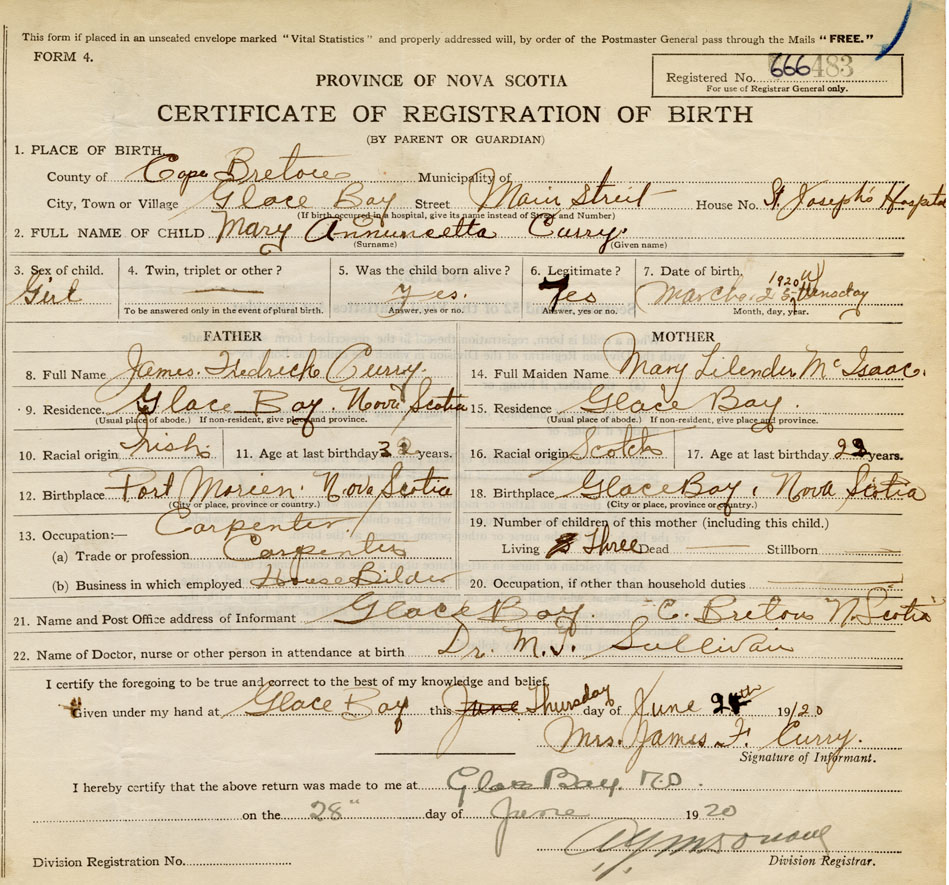 This form if placed in an unsealed envelope marked "Vital Statistics" and properly addressed will, by order of the Postmaster General pass through the Mails "FREE."
FORM 4.
PROVINCE OF NOVA SCOTIA
Registered No. 666483
For use of Registrar General only.
CERTIFICATE OF REGISTRATION OF BIRTH
(BY PARENT OR GUARDIAN)
1. PLACE OF BIRTH.
County of Cape Breton Municipality of
City, Town or Village Glace Bay Street Main Street House No. St. Joseph's Hospital
(If birth occurred in a hospital, give its name instead of Street and Number)
2. FULL NAME OF CHILD Mary Annuncetta Curry.
(Surname) (Given name)
3. Sex of child. 4. Twin, triplet or other? 5. Was the child born alive? 6. Legitimate? 7. Date of birth.
Girl yes. Yes March 1920
To be answered only in the event of plural birth. Answer, yes or no. Answer, yes or no. Month, day, year.
FATHER MOTHER
8. Full Name James Fredrick Curry. 14. Full Maiden Name Mary Lilender McIsaac.
9. Residence. Glace Bay. Nova Scotia 15. Residence Glace Bay.
(Usual place of abode.) If non-resident, give place and province. (Usual place of abode.) If non-resident, give place and province.
10. Racial origin Irish. 11. Age at last birthday years. 16. Racial origin Scotch 17. Age at last birthday years.
12. Birthplace Port Morien. Nova Scotia 18. Birthplace Glace Bay, Nova Scotia
(City or place, province or country.) (City or place, province or country.)
Carpenter 19. Number of children of this mother (including this child.)
13. Occupation:—
(a) Trade or profession Carpenter Living Three Dead Stillborn
(b) Business in which employed House Bilder 20. Occupation, if other than household duties
21. Name and Post Office address of Informant Glace Bay. C. Breton N. Scotia
22. Name of Doctor, nurse or other person in attendance at birth Dr. M. J. Sullivan
I certify the foregoing to be true and correct to the best of my knowledge and belief.
Given under my hand at Glace Bay this June Thursday day of June 24th 19/20
Mrs. James F. Curry.
Signature of Informant.
I hereby certify that the above return was made to me at Glace Bay.
on the 28" day of June 1920
Division Registration No. Division Registrar.